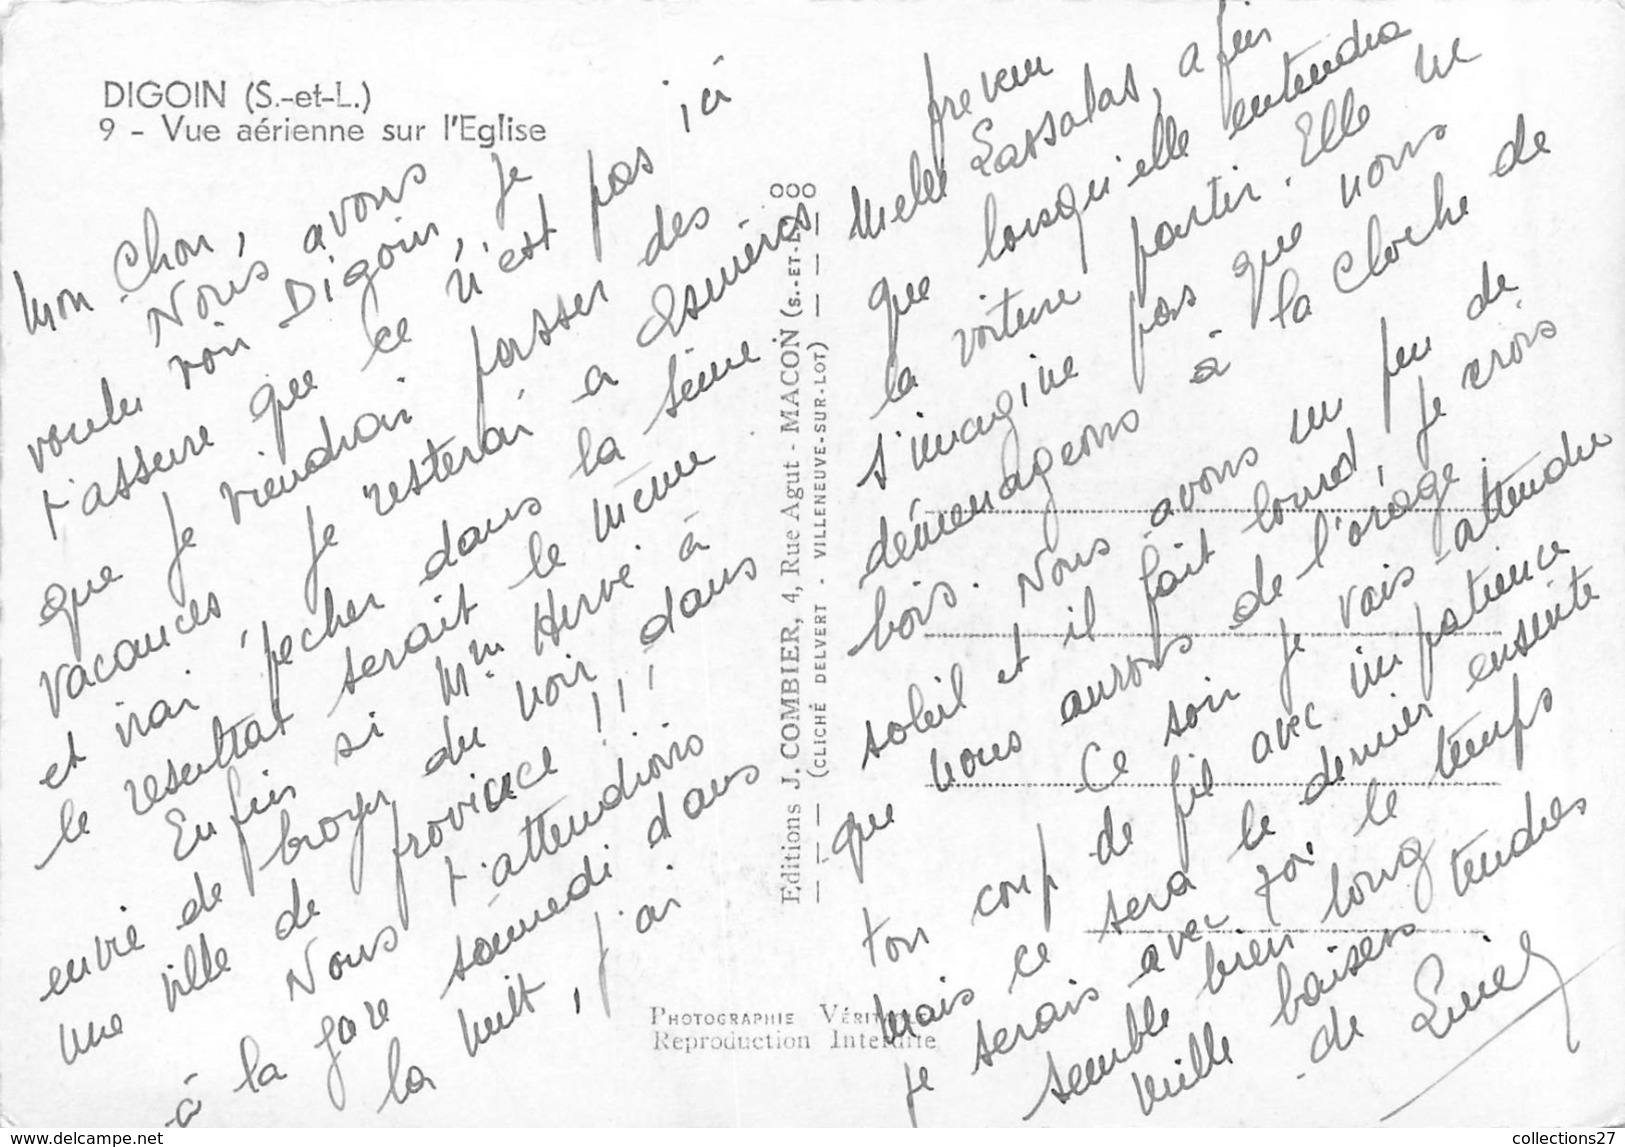 DIGOIN (S.-et-L.)
9 - Vue aérienne sur l'Eglise
Mon Chou,
Nous avons
voulu voir Digoin, je
t'assure que ce n'est pas ici
que je viendrai passer des
vacances je resterai a Asnières
et irai pecher dans la seine
le resultat serait le même
Enfin si Mme Hervé à
envie de broyer du noir dans
une ville de province !!!
Nous t'attendrons
à la gare samedi dans
la nuit, j'ai
prevenu
Melle Lassalas, afin
que lorsqu'elle entendra
la voiture partir. Elle ne
s'imagine pas que nous
démenageons à la cloche de
bois. Nous avons un peu de
soleil et il fait lourd, je crois
que nous aurons de l'orage.
Ce soir je vais attendre
ton coup de fil avec impatience
mais ce sera le dernier ensuite
je serais avec toi le temps
semble bien long
mille baisers tendres
de
Editions J. COMBIER, 4, Rue Agut - MACON (S.-ET-L.)
(CLICHÉ DELVERT - VILLENEUVE-SUR-LOT)
PHOTOGRAPHIE VÉRITABLE
Reproduction Interdite
www.delcampe.net
collections27